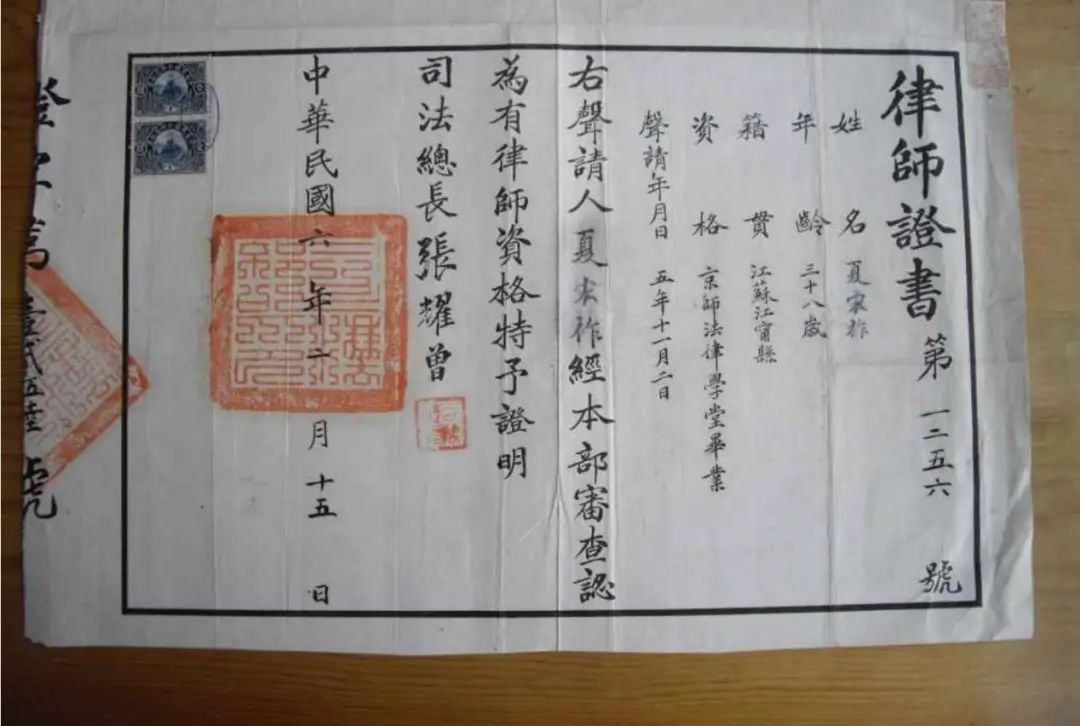 律師證書第一二五六號
姓名夏宗祚
年齡三十八歲
籍貫江蘇江甯縣
資格京師法律學堂畢業
聲請年月日五年十一月二日
右聲請人夏宗祚經本部審查認
為有律師資格特予證明
司法總長張耀曾
中華民國六年二月十五日
證字第壹貳五陸號